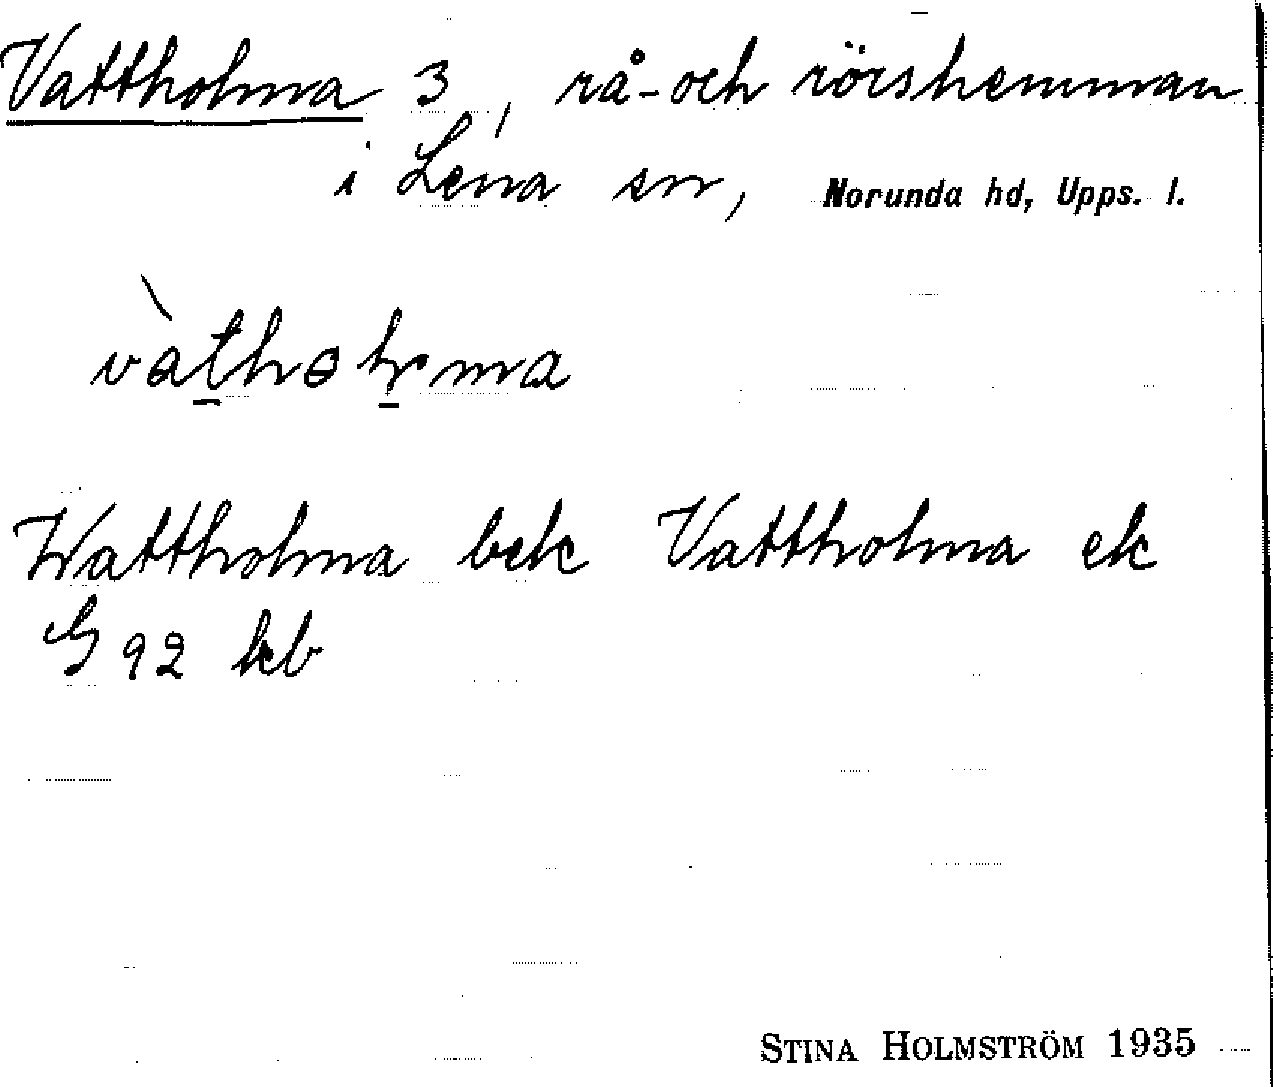 Vattholma 3, rå- och rörshemman
i Lena sn, Norunda hd, Upps. l.
Wattholma bek Vattholma ek
G 92 kb
STINA HOLMSTRÖM 1935